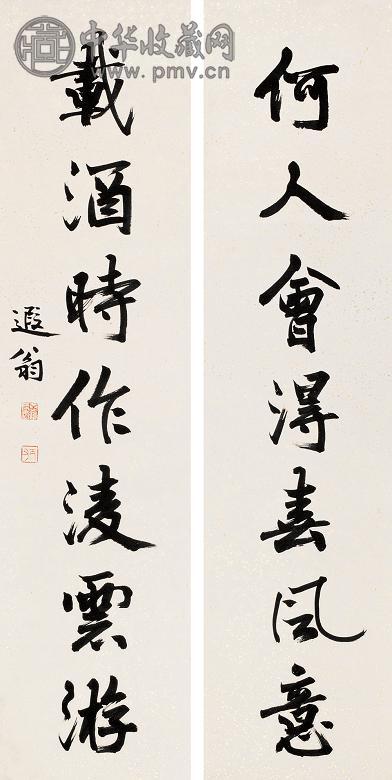 中华收藏网
www.pmv.cn
何人會得春風意
載酒時作凌雲游
遐翁